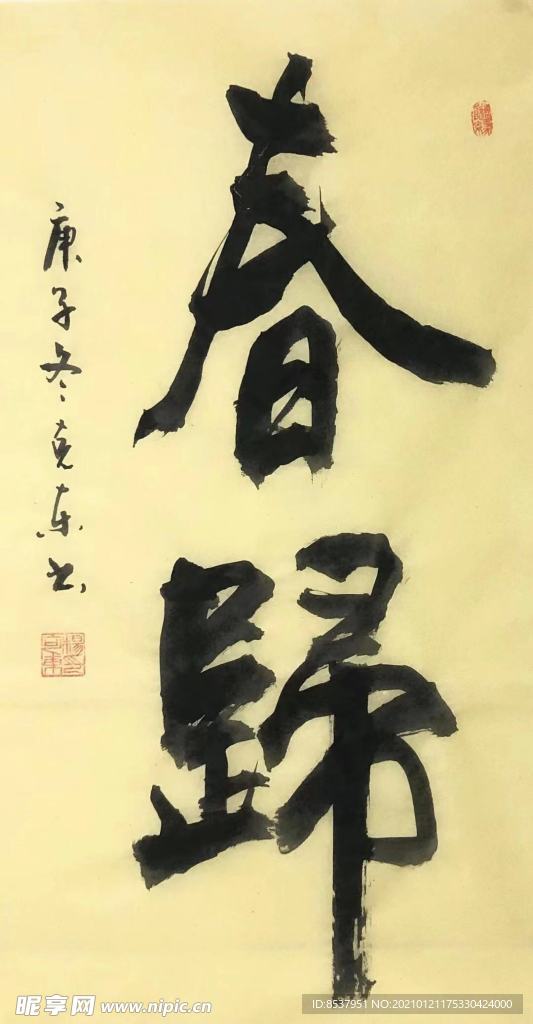 春歸
庚子冬克东书
杨克东印
昵享网 www.nipic.cn
ID:8537951 NO:20210121175330424000